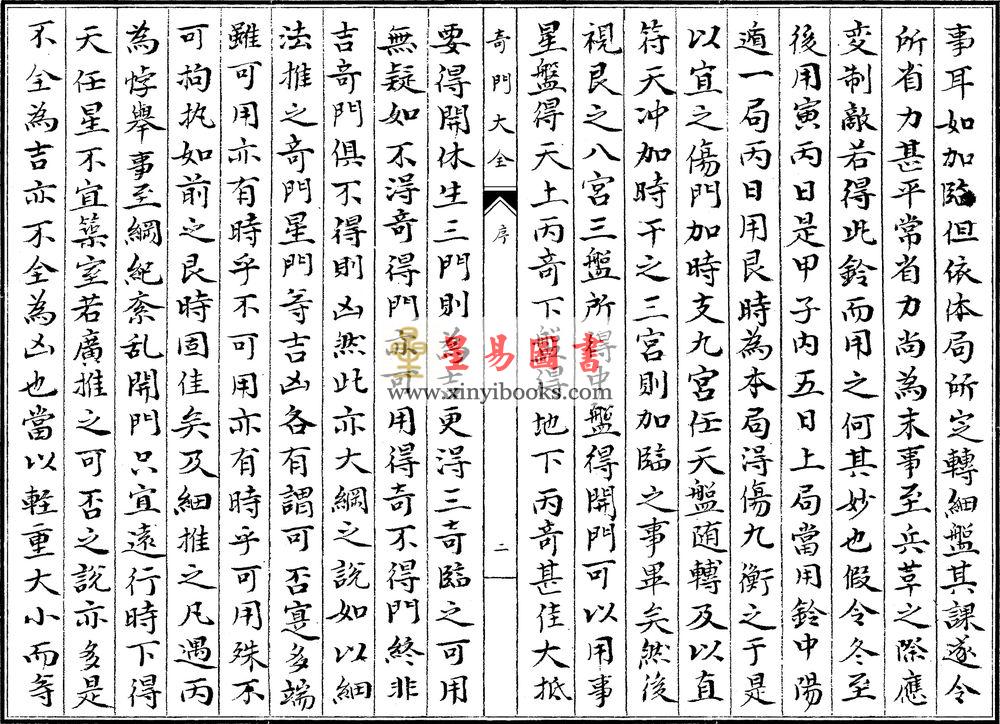 事耳如加臨但依体局所定轉細盤其課遂令
所省力甚平常省力尚為末事至兵革之際應
変制敵若得此鈴而用之何其妙也假令冬至
後用寅丙日是甲子内五日上局當用鈴中陽
遁一局丙日用艮時為本局淂傷九衡之于是
以宜之傷門加時支九宮任天盤随轉及以直
符天冲加時干之三宮則加臨之事畢矣然後
視艮之八宮三盤所得中盤得開門可以用事
星盤得天上丙奇下盤得地下丙奇甚佳大抵
奇門大全 序 二
要得開休生三門則為吉更淂三奇臨之可用
無疑如不淂奇得門亦可用得奇不得門終非
吉奇門俱不得則凶然此亦大綱之說如以細
法推之奇門星門等吉凶各有謂可否寔多端
雖可用亦有時乎不可用亦有時乎可用殊不
可拘执如前之艮時固佳矣及細推之凡遇丙
為悖舉事至綱紀紊乱開門只宜遠行時下得
天任星不宜築室若廣推之可否之說亦多是
不全為吉亦不全為凶也當以輕重大小而等
星易圖書
www.xinyibooks.com